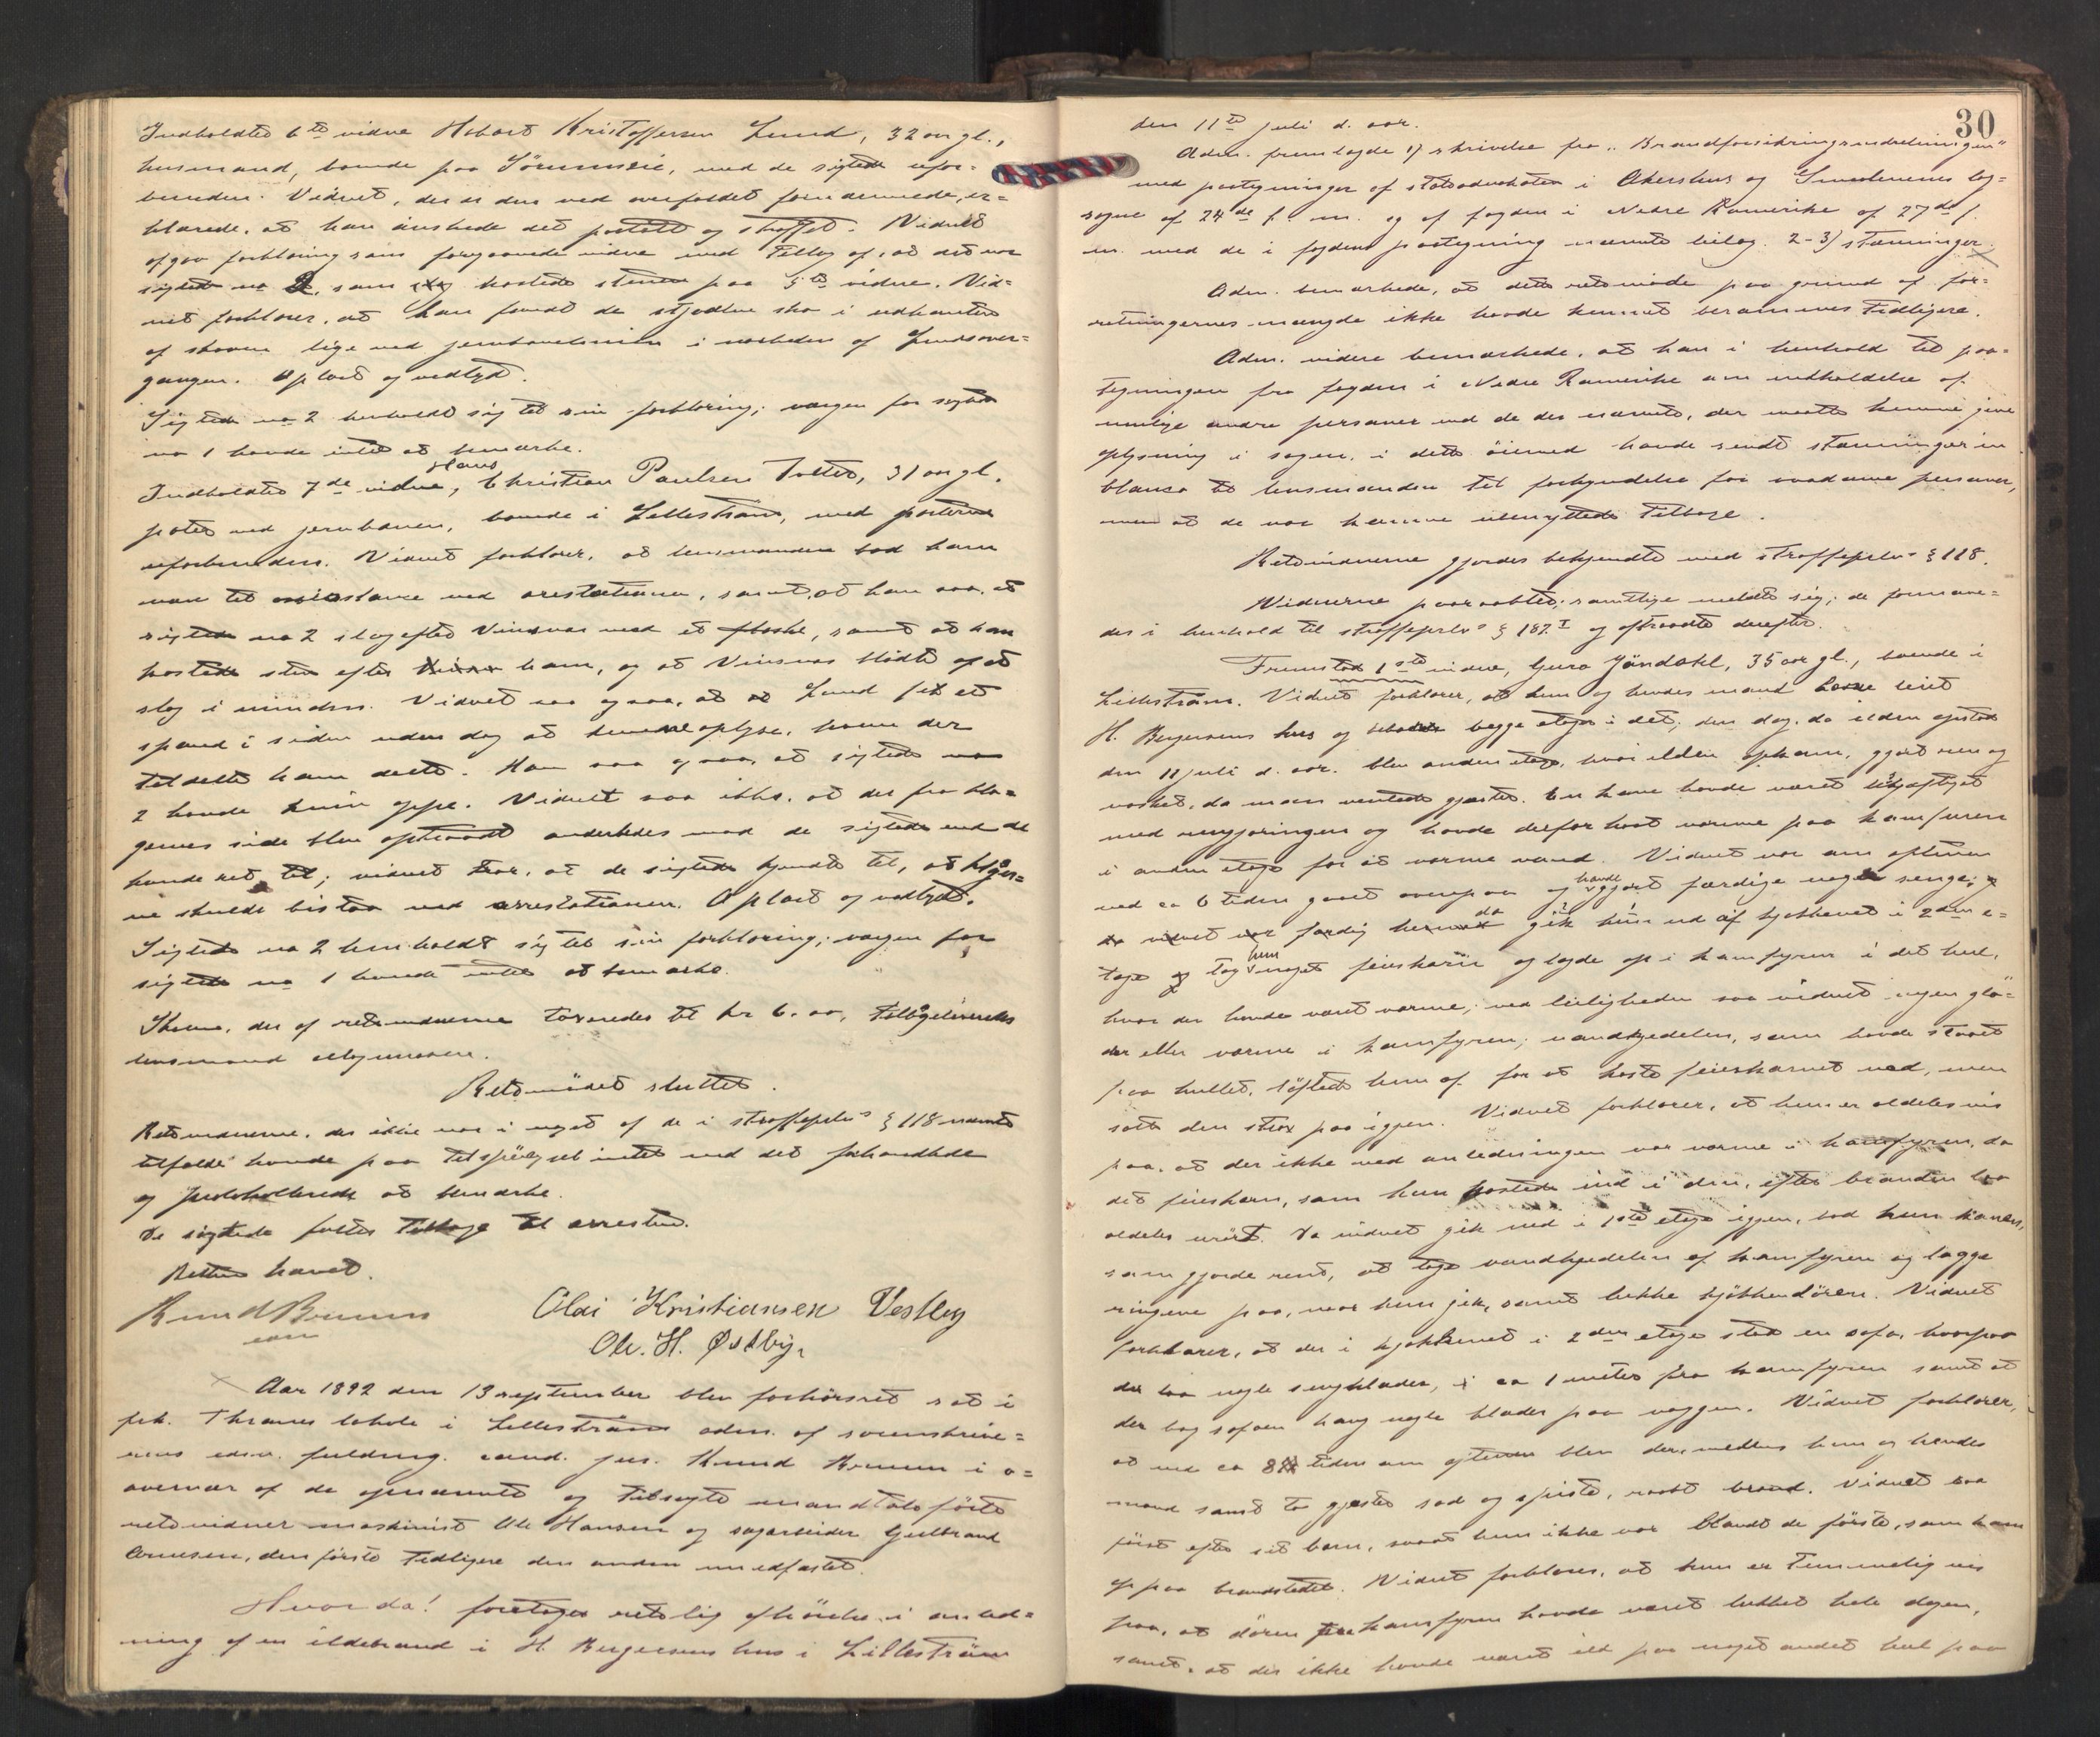 Indkaldtes 6te vidne Hobart Kristoffersen Lund, 32 aar gl.,
husmand, boende paa Sörumseie, med de sigtede ufor=
bunden. Vidnet, der er den ved overfaldet fornærmede, er=
klærede, at han önskede det paatalt og straffet. Vidnet
afgav forklaring som foregaaende vidne med Tillæg af, at det var
sigtede no 2, som kastede stenen paa 5te vidne. Vid=
net forklarer, at han fandt de stjaalne sko i udkanten
af skoven lige ved jernbanelinien i nærheden af Lundsover=
gangen. Oplæst og vedtaget.
Sigtede no 2 henholdt sig til sin forklaring; værgen for sigtede
no 1 havde intet at bemærke.
Indkaldtes 7de vidne, Hans Christian Paulsen Toltes, 31 aar gl.
ved jernbanen, boende i Lilleström, med parterne
uforbunden. Vidnet forklarer, at lensmanden bad ham
være til assistance ved arrestationen, samt, at han saa, at
sigtede no 2 slog efter Vinsnes med et flaske, samt at han
kastede sten efter ham, og at Vinsnes blödte af et
slag i minden. Vidnet saa ogsaa, at Lund fik et
spænd i siden uden dog at kunne oplyse, hvem der
tildelte ham dette. Han saa ogsaa, at sigtede no
2 havde kniv oppe. Vidnet saa ikke, at der fra kla=
gernes side blev optraadt anderledes mod de sigtede end de
havde ret til; vidnet tror, at de sigtede kjendte til, at klager=
ne skulde bistaa ved arrestationen. Oplæst og vedtaget.
Sigtede no 2 henholdt sig til sin forklaring; værgen for
sigtede no 1 havde intet at bemærke.
Skoene, der af retsvidnerne taxeredes til kr 6.00, tilbageleveredes
lensmand
Retsmödet sluttet.
Retsvidnerne, der ikke var i noget af de i straffeprlovs § 118 nævnte
tilfælde havde paa tilspörgsel intet ved det forhandlede
og protokollerede at bemærke.
De sigtede förtes tilbage til arresten.
Retten hævet.
Knud Bruun Olai Kristiansen Vestby
con Ole. H. Østby.
Aar 1892 den 13 september blev forhörsret sat i
frk. Thranes lokale i Lilleström adm. af sorenskrive=
rens edsv. fuldmg. cand. jur. Knud Bruun i o=
vervær af de opnævnte og tilsagte mandtalsförte
retsvidner maskinist Ole Hansen og sagarbeider Gulbrand
Arnesen, den förste tidligere den anden nu edfæstet.
Hvorda! foretoges retslig afhörelse i anled=
ning af en ildebrand i H. Bergersens hus i Lilleström
30
den 11te juli d. aar.
Adm. fremlagde 1) skrivelse fra "Brandforsikringsindretningen"
med paategninger af statsadvokaten i Akershus og Smaalenenes lag=
sogne af 24de f. m. og af fogden i Nedre Romerike af 27de f.
m. med de i fogdens paategning nævnte bilag. 2-3) stævninger.
Adm. bemærkede, at dette retsmöde paa grund af for=
retningernes mængde ikke havde kunnet berammes tidligere.
Adm. videre bemærkede, at han i henhold til paa=
tegningen fra fogden i Nedre Romerike om indkaldelse af
mulige andre personer end de der nævnte, der maatte kunne give
oplysning i sagen, i dette öiemed havde sendt stævninger in
blanco til lensmanden til forkyndelse for saadanne personer,
men at de var komne ubenyttede tilbage.
Retsvidnerne gjordes bekjendte med straffeprlovs § 118.
Vidnerne paaraabtes; samtlige meldte sig; de formane=
des i henhold til straffeprlovs § 187.I og aftraadte derefter.
Fremstod 1ste vidne, Guro Jöndahl, 35 aar gl., boende i
Lilleström. Vidnet forklarer, at hun og hendes mand leiet
H. Bergersens hus og beboede begge etager i det; den dag, da ilden opstod
den 11 juli d. aar. blev anden etage, hvor ilden opkom, gjort ren og
vasket, da man ventede gjester. En kone havde været
med rengjöringen og havde derfor havt varme paa kamfuren
i anden etage for at varme vand. Vidnet var om aftenen
ved ca 6 tiden gaaet ovenpaa og havde gjort færdige nogle senge; og
da vidnet var færdig hermed da gik hun ud af kjökkenet i 2den e=
tage og tog hun noget feieskarn og lagde op i kamfyren i det hul,
hvor der havde været varme; ved leiligheden saa vidnet ingen glö=
der eller varme i kamfyren; vandkjedelen, som havde staaet
paa hullet, löftede hun af for at kaste feieskarnet ned, men
satte den strax paa igjen. Vidnet forklarer, at hun er aldeles vis
paa, at der ikke ved anledningen var varme i kamfyren, da
det feieskarn, som hun kastede ind i den, efter branden laa
aldeles urört. Da vidnet gik ned i 1ste etage igjen, bad hun konen,
som gjorde rent, at tage vandkjedelen af kamfyren og lægge
ringene paa, naar hun gik, samt lukke kjökkendören. Vidnet
forklarer, at der i kjökkenet i 2den etage stod en sofa, hvorpaa
der laa nogle sengklæder, ca 1 meter fra kamfyren samt at
der bag sofaen hang nogle klæder paa væggen. Vidnet forklarer,
at ved ca 8 tiden om aftenen blev der, medens hun og hendes
mand samt to gjester sad og spiste, raabt brand. Vidnet saa
först efter sit barn, saaat hun ikke var blandt de förste, som kom
op paa brandstedet. Vidnet forklarer, at hun er temmelig vis
paa, at dören kamfyren havde været lukket hele dagen,
samt, at der ikke havde været ild paa noget andet hul paa